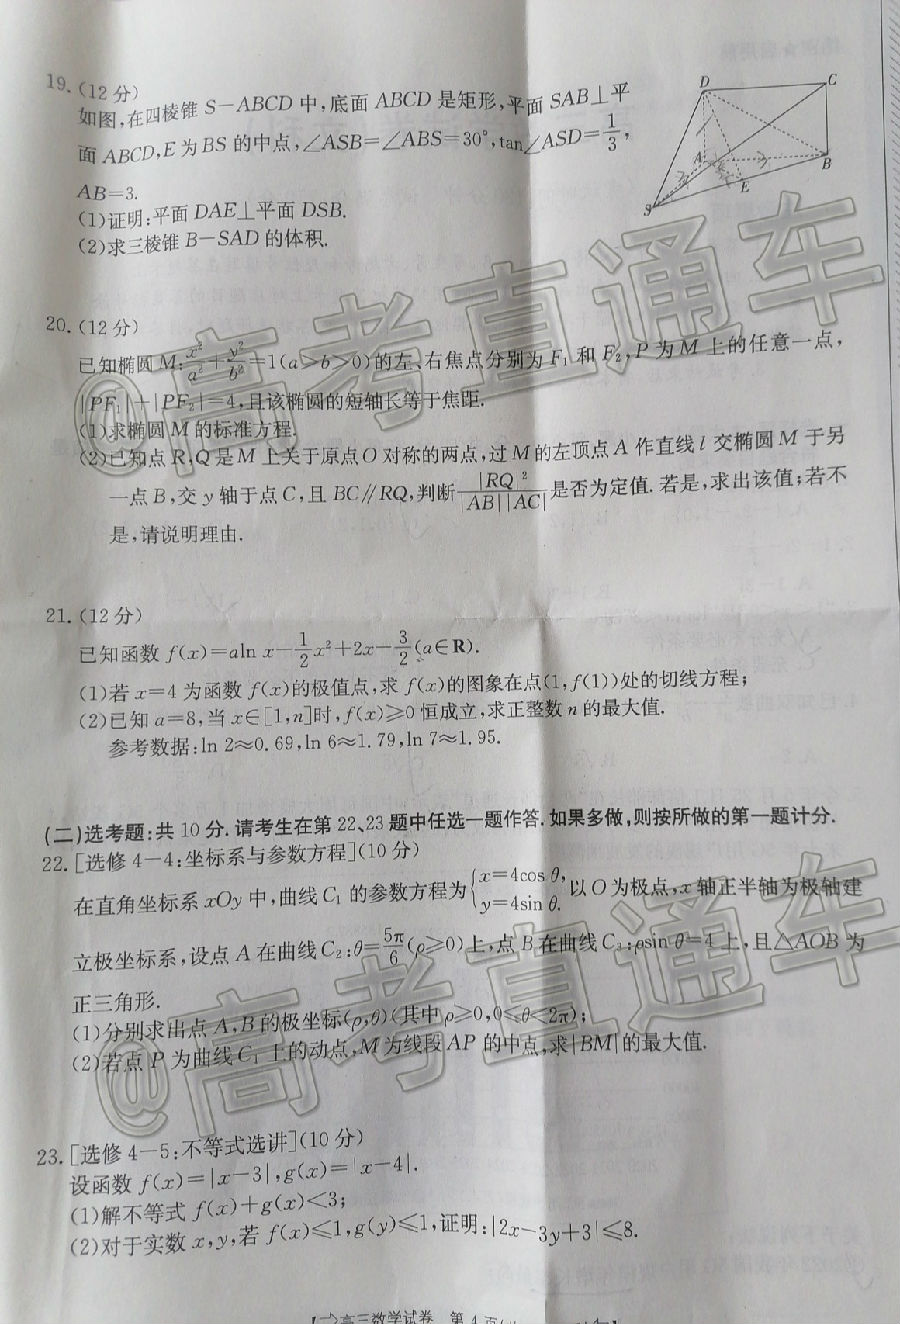 19.(12分)
如图,在四棱锥 S-ABCD 中,底面 ABCD 是矩形,平面 SAB⊥平
面 ABCD,E 为 BS 的中点,∠ASB=∠ABS=30°,tan∠ASD=1/3,
AB=3.
(1)证明:平面 DAE⊥平面 DSB.
(2)求三棱锥 B-SAD 的体积.
D
C
A
B
E
S
20.(12分)
已知椭圆 M:x²/a²+y²/b²=1(a>b>0)的左、右焦点分别为 F₁ 和 F₂,P 为 M 上的任意一点,
|PF₁|+|PF₂|=4,且该椭圆的短轴长等于焦距.
(1)求椭圆 M 的标准方程.
(2)已知点 R,Q 是 M 上关于原点 O 对称的两点,过 M 的左顶点 A 作直线 l 交椭圆 M 于另
一点 B,交 y 轴于点 C,且 BC∥RQ,判断|RQ|²/|AB||AC|是否为定值.若是,求出该值;若不
是,请说明理由.
21.(12分)
已知函数 f(x)=aln x-1/2x²+2x-3/2(a∈R).
(1)若 x=4 为函数 f(x)的极值点,求 f(x)的图象在点(1,f(1))处的切线方程;
(2)已知 a=8,当 x∈[1,n]时,f(x)≥0 恒成立,求正整数 n 的最大值.
参考数据:ln 2≈0.69,ln 6≈1.79,ln 7≈1.95.
(二)选考题:共 10 分.请考生在第 22、23 题中任选一题作答.如果多做,则按所做的第一题计分.
22.[选修 4-4:坐标系与参数方程](10分)
在直角坐标系 xOy 中,曲线 C₁ 的参数方程为{x=4cos θ, y=4sin θ. 以 O 为极点,x 轴正半轴为极轴建
立极坐标系,设点 A 在曲线 C₂:θ=5π/6(ρ≥0)上,点 B 在曲线 C₃:ρsin θ=4 上,且△AOB 为
正三角形.
(1)分别求出点 A,B 的极坐标(ρ,θ)(其中 ρ≥0,0≤θ<2π);
(2)若点 P 为曲线 C₁ 上的动点,M 为线段 AP 的中点,求|BM|的最大值.
23.[选修 4-5:不等式选讲](10分)
设函数 f(x)=|x-3|,g(x)=|x-4|.
(1)解不等式 f(x)+g(x)<3;
(2)对于实数 x,y,若 f(x)≤1,g(y)≤1,证明:|2x-3y+3|≤8.
@高考直通车
@高考直通车
高三数学试卷 第 4 页